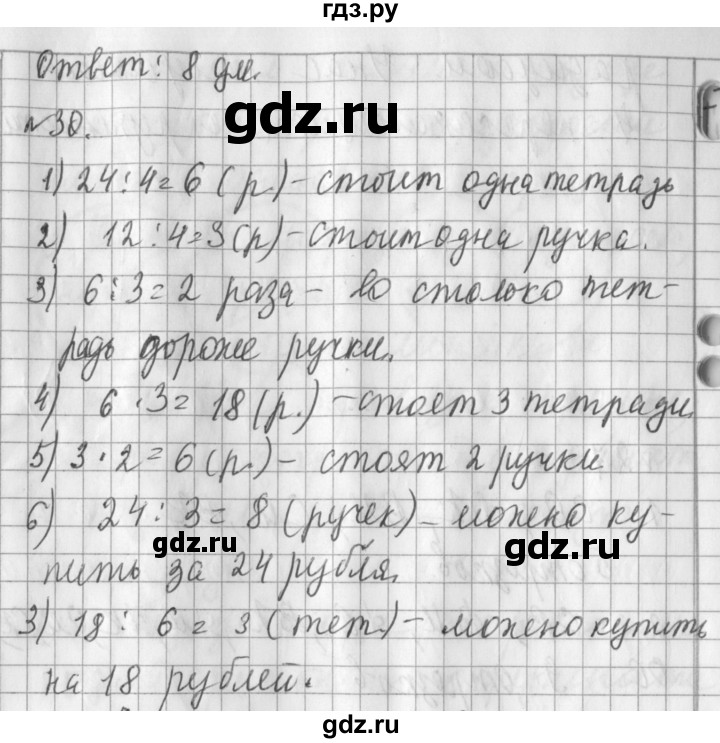 гдз.ру
Ответ: 8 дм.
№30.
gdz.ru
1) 24 : 4 = 6 (р.) – стоит одна тетрадь
2) 12 : 4 = 3 (р) – стоит одна ручка.
3) 6 : 3 = 2 раза – во столько тет-
радь дороже ручки.
4) 6 · 3 = 18 (р.) – стоет 3 тетради.
5) 3 · 2 = 6 (р.) – стоят 2 ручки
6) 24 : 3 = 8 (ручек) – можно ку-
gdz.ru gdz.ru
пить за 24 рубля.
3) 18 : 6 = 3 (тет.) – можно купить
на 18 рублей.
gdz.ru